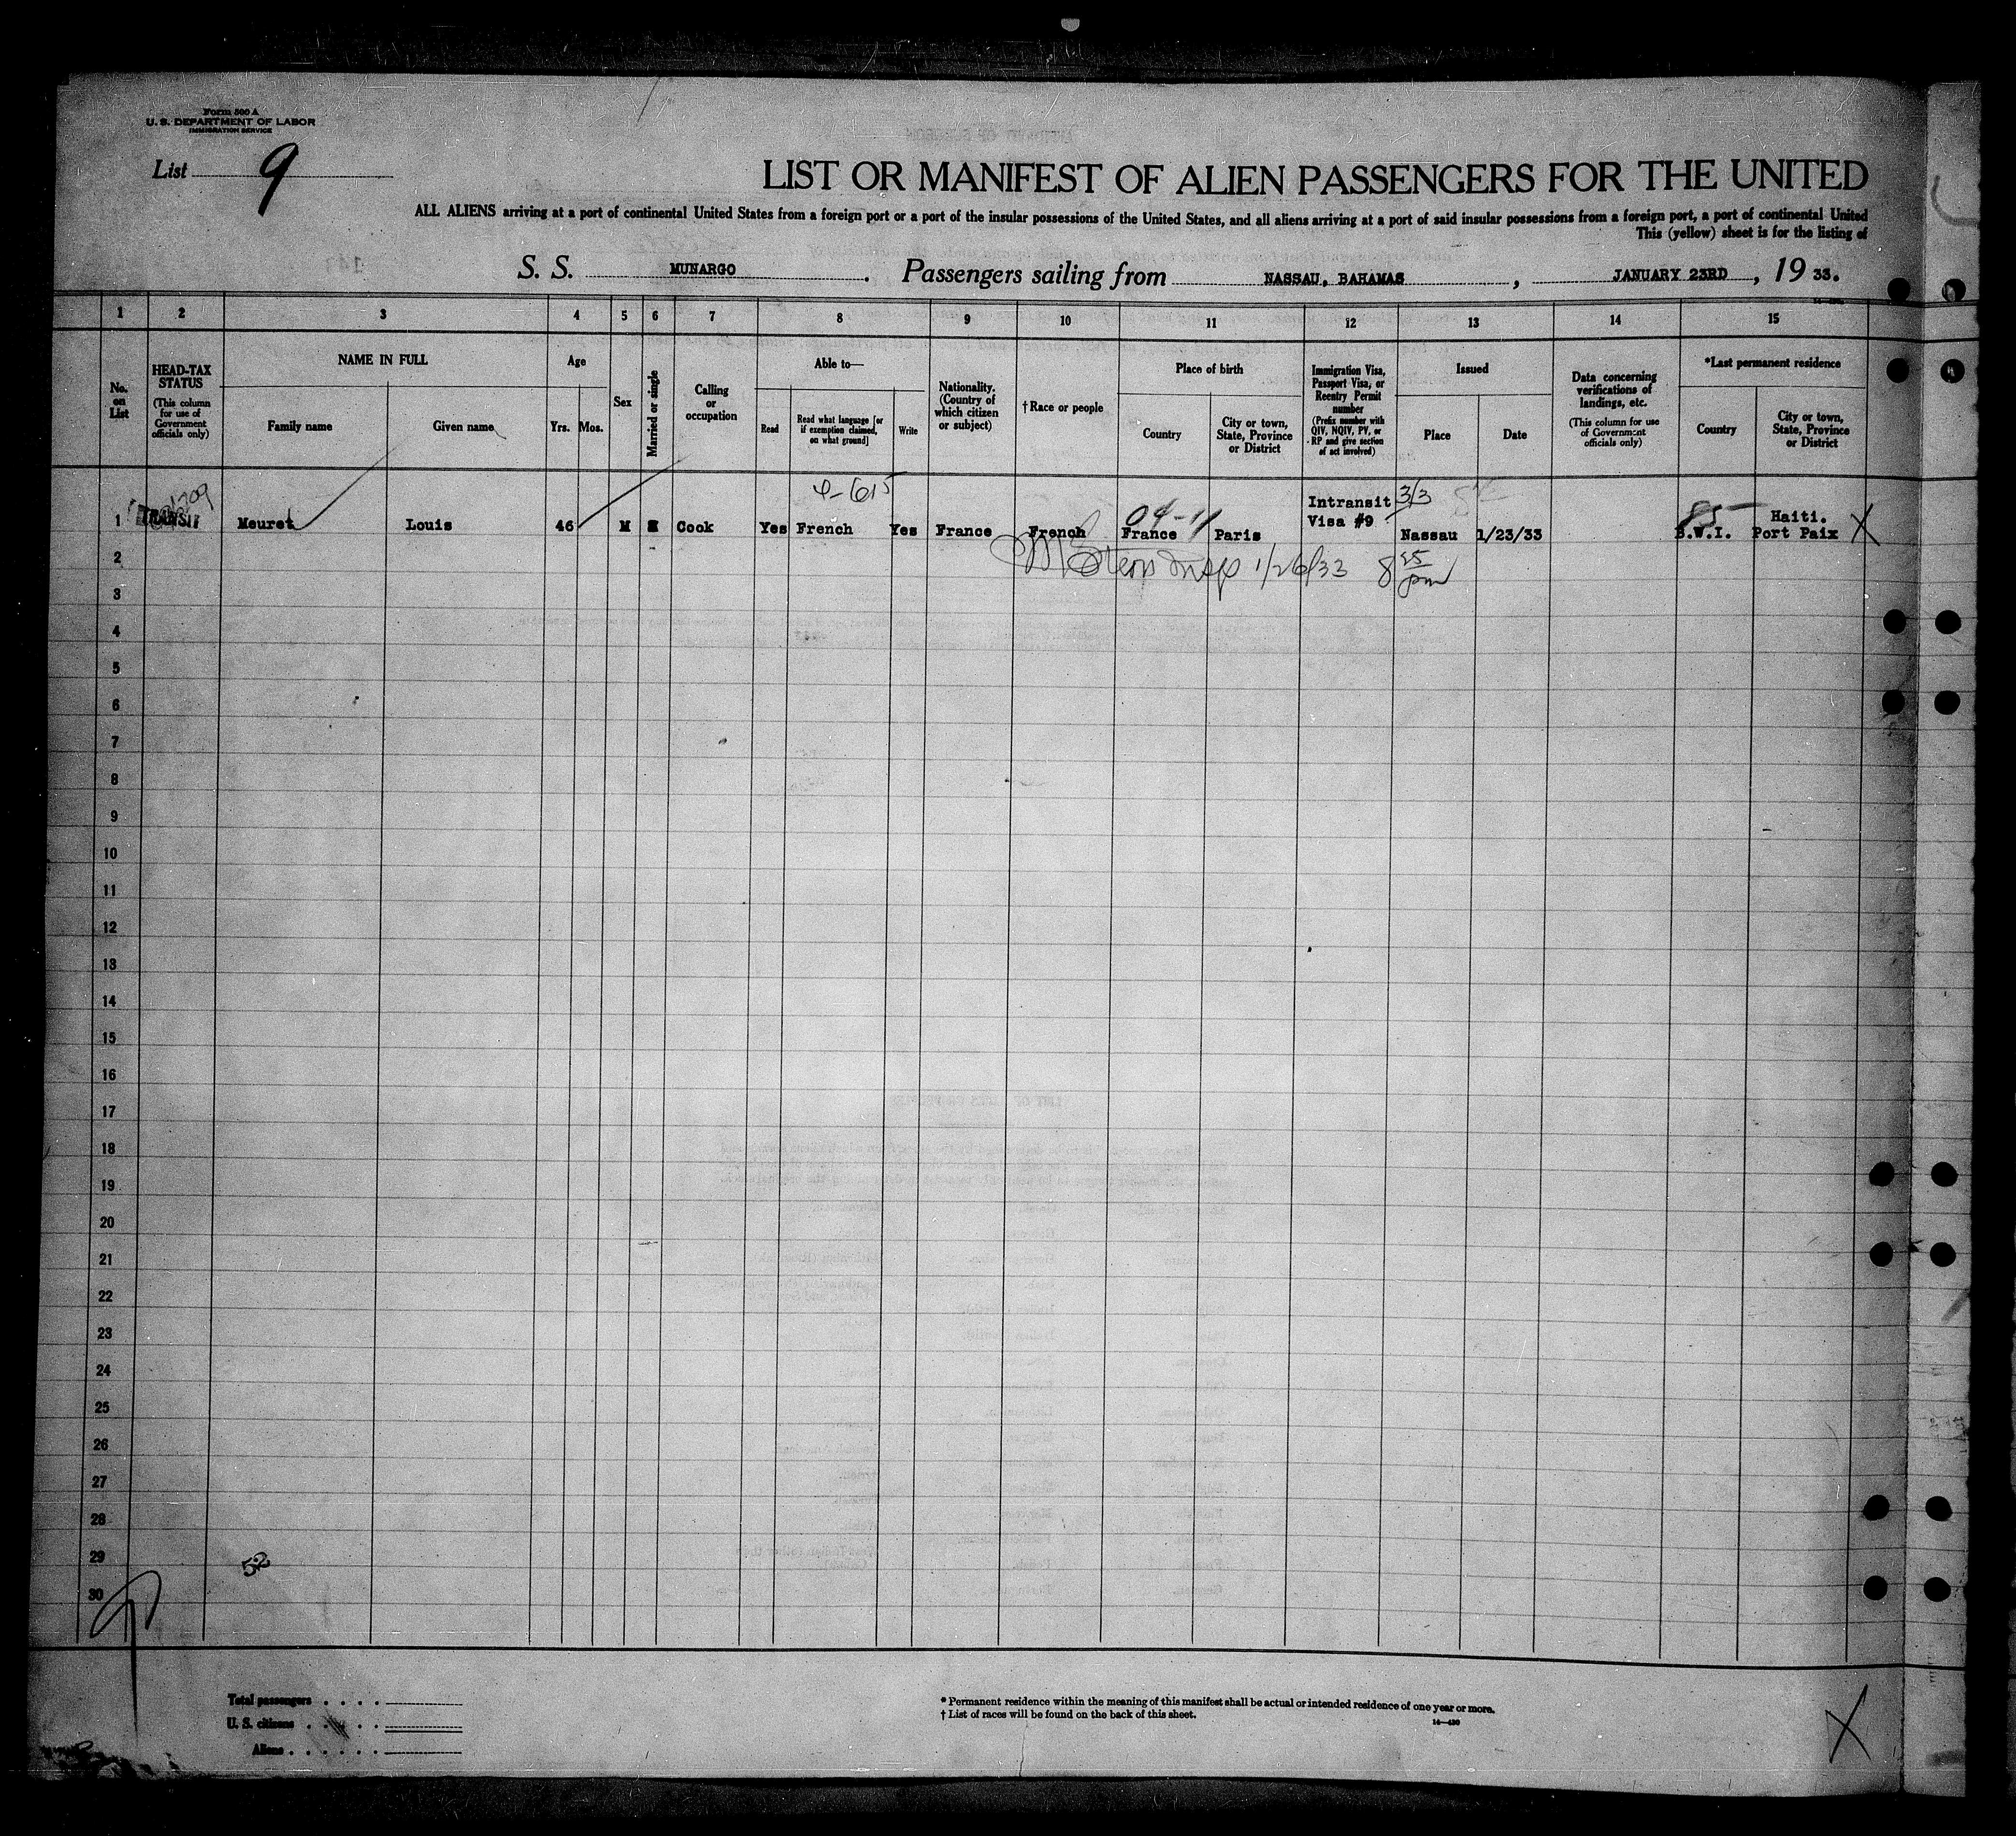 Form 500 A
U. S. DEPARTMENT OF LABOR
IMMIGRATION SERVICE
List 9
LIST OR MANIFEST OF ALIEN PASSENGERS FOR THE UNITED
ALL ALIENS arriving at a port of continental United States from a foreign port or a port of the insular possessions of the United States, and all aliens arriving at a port of said insular possessions from a foreign port, a port of continental United
This (yellow) sheet is for the listing of
S. S. MUNARGO. Passengers sailing from NASSAU, BAHAMAS, JANUARY 23RD, 19 33.
1 2 3 4 5 6 7 8 9 10 11 12 13 14 15
No. on List
HEAD-TAX STATUS
(This column for use of Government officials only)
NAME IN FULL
Family name
Given name
Age
Yrs.
Mos.
Sex
Married or single
Calling or occupation
Able to—
Read
Read what language [or if exemption claimed, on what ground]
Write
Nationality. (Country of which citizen or subject)
† Race or people
Place of birth
Country
City or town, State, Province or District
Immigration Visa, Passport Visa, or Reentry Permit number
(Prefix number with QIV, NQIV, PV, or RP and give section of act involved)
Issued
Place
Date
Data concerning verifications of landings, etc.
(This column for use of Government officials only)
*Last permanent residence
Country
City or town, State, Province or District
4-615
3/3
04-11
85
1 TRANSIT Meuret Louis 46 M Cook Yes French Yes France French France Paris Intransit Visa #9 Nassau 1/23/33 B.W.I. Haiti. Port Paix X
Insp 1/26/33 8 25 pm
2
3
4
5
6
7
8
9
10
11
12
13
14
15
16
17
18
19
20
21
22
23
24
25
26
27
28
29
52
30
Total passengers . . . .
U. S. citizens . . . . .
Aliens . . . . . .
* Permanent residence within the meaning of this manifest shall be actual or intended residence of one year or more.
† List of races will be found on the back of this sheet.
14—430
X